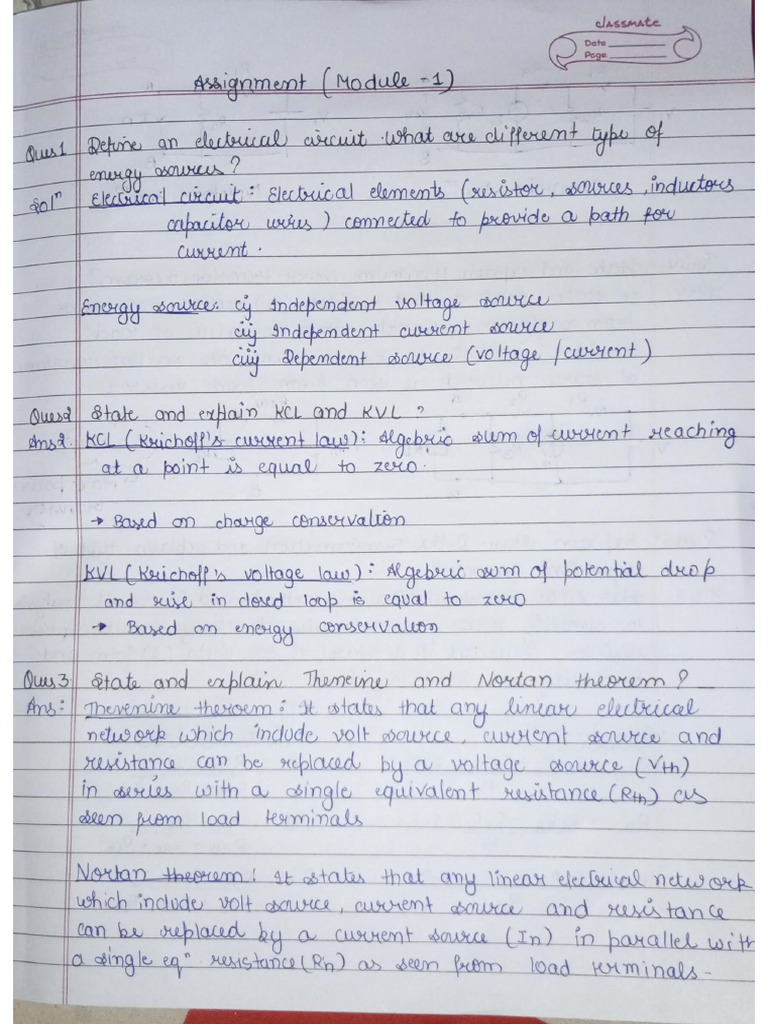 classmate
Date
Page
Assignment (Module -1)
Ques1 Define an electrical circuit. what are different type of
energy sources?
Solⁿ Electrical circuit: Electrical elements (resistor, sources, inductors
capacitor wries) connected to provide a path for
current.
Energy source: (i) Independent voltage source
(ii) Independent current source
(iii) Dependent source (voltage / current)
Ques2 State and explain KCL and KVL ?
Ans2. KCL (Krichoff's current law): Algebric sum of current reaching
at a point is equal to zero.
→ Based on charge conservation
KVL (Krichoff's voltage law): Algebric sum of potential drop
and rise in closed loop is equal to zero
→ Based on energy conservation
Ques 3 State and explain Theneine and Nortan theorem ?
Ans: Thevenine theroem: It states that any linear electrical
network which include volt source, current source and
resistance can be replaced by a voltage source (Vth)
in series with a single equivalent resistance (Rth) as
seen from load terminals
Nortan theorem: It states that any linear electrical network
which include volt source, current source and resistance
can be replaced by a current source (In) in parallel with
a single eqⁿ resistance (Rn) as seen from load terminals-